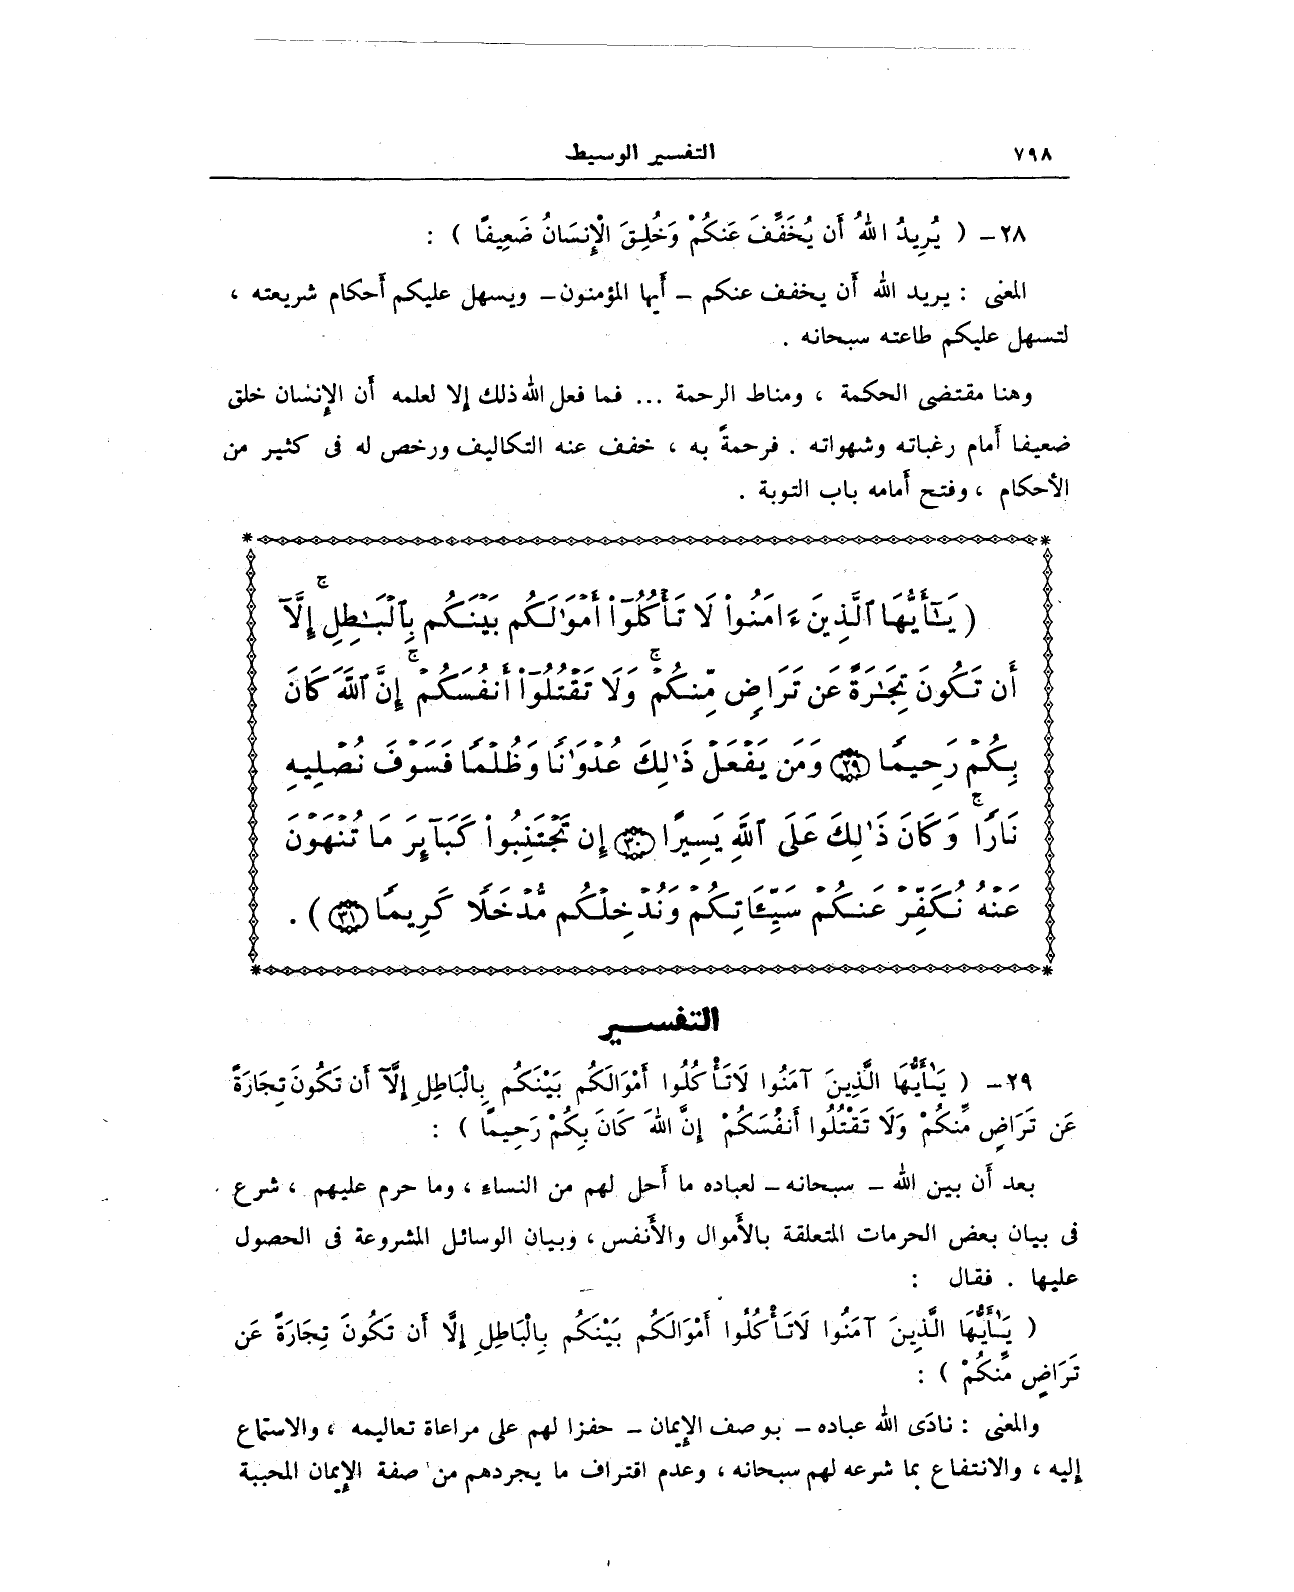 ٧٩٨ التفسير الوسيط
٢٨ - ( يُرِيدُ اللهُ أَن يُخَفِّفَ عَنكُمْ وَخُلِقَ الْإِنسَانُ ضَعِيفًا ) :
المعنى : يريد الله أن يخفف عنكم - أيها المؤمنون - ويسهل عليكم أحكام شريعته ،
لتسهل عليكم طاعته سبحانه .
وهنا مقتضى الحكمة ، ومناط الرحمة ... فما فعل الله ذلك إلا لعلمه أن الإنسان خلق
ضعيفا أمام رغباته وشهواته . فرحمةً به ، خفف عنه التكاليف ورخص له فى كثير من
الأحكام ، وفتح أمامه باب التوبة .
( يَـٰٓأَيُّهَا ٱلَّذِينَ ءَامَنُوا۟ لَا تَأْكُلُوٓا۟ أَمْوَٰلَكُم بَيْنَكُم بِٱلْبَـٰطِلِ ۚ إِلَّآ
أَن تَكُونَ تِجَـٰرَةً عَن تَرَاضٍ مِّنكُمْ ۚ وَلَا تَقْتُلُوٓا۟ أَنفُسَكُمْ ۚ إِنَّ ٱللَّهَ كَانَ
بِكُمْ رَحِيمًا ٢٩ وَمَن يَفْعَلْ ذَٰلِكَ عُدْوَٰنًا وَظُلْمًا فَسَوْفَ نُصْلِيهِ
نَارًا ۚ وَكَانَ ذَٰلِكَ عَلَى ٱللَّهِ يَسِيرًا ٣٠ إِن تَجْتَنِبُوا۟ كَبَآئِرَ مَا تُنْهَوْنَ
عَنْهُ نُكَفِّرْ عَنكُمْ سَيِّـَٔاتِكُمْ وَنُدْخِلْكُم مُّدْخَلًا كَرِيمًا ٣١ ) .
التفسير
٢٩ - ( يَـٰأَيُّهَا الَّذِينَ آمَنُوا لَا تَأْكُلُوا أَمْوَالَكُم بَيْنَكُم بِالْبَاطِلِ إِلَّآ أَن تَكُونَ تِجَارَةً
عَن تَرَاضٍ مِّنكُمْ وَلَا تَقْتُلُوا أَنفُسَكُمْ إِنَّ اللهَ كَانَ بِكُمْ رَحِيمًا ) :
بعد أن بين الله - سبحانه - لعباده ما أحل لهم من النساء ، وما حرم عليهم ، شرع
فى بيان بعض الحرمات المتعلقة بالأموال والأنفس ، وبيان الوسائل المشروعة فى الحصول
عليها . فقال :
( يَـٰأَيُّهَا الَّذِينَ آمَنُوا لَا تَأْكُلُوا أَمْوَالَكُم بَيْنَكُم بِالْبَاطِلِ إِلَّا أَن تَكُونَ تِجَارَةً عَن
تَرَاضٍ مِّنكُمْ ) :
والمعنى : نادَى الله عباده - بوصف الإيمان - حفزا لهم على مراعاة تعاليمه ، والاستماع
إليه ، والانتفاع بما شرعه لهم سبحانه ، وعدم اقتراف ما يجردهم من صفة الإيمان المحببة